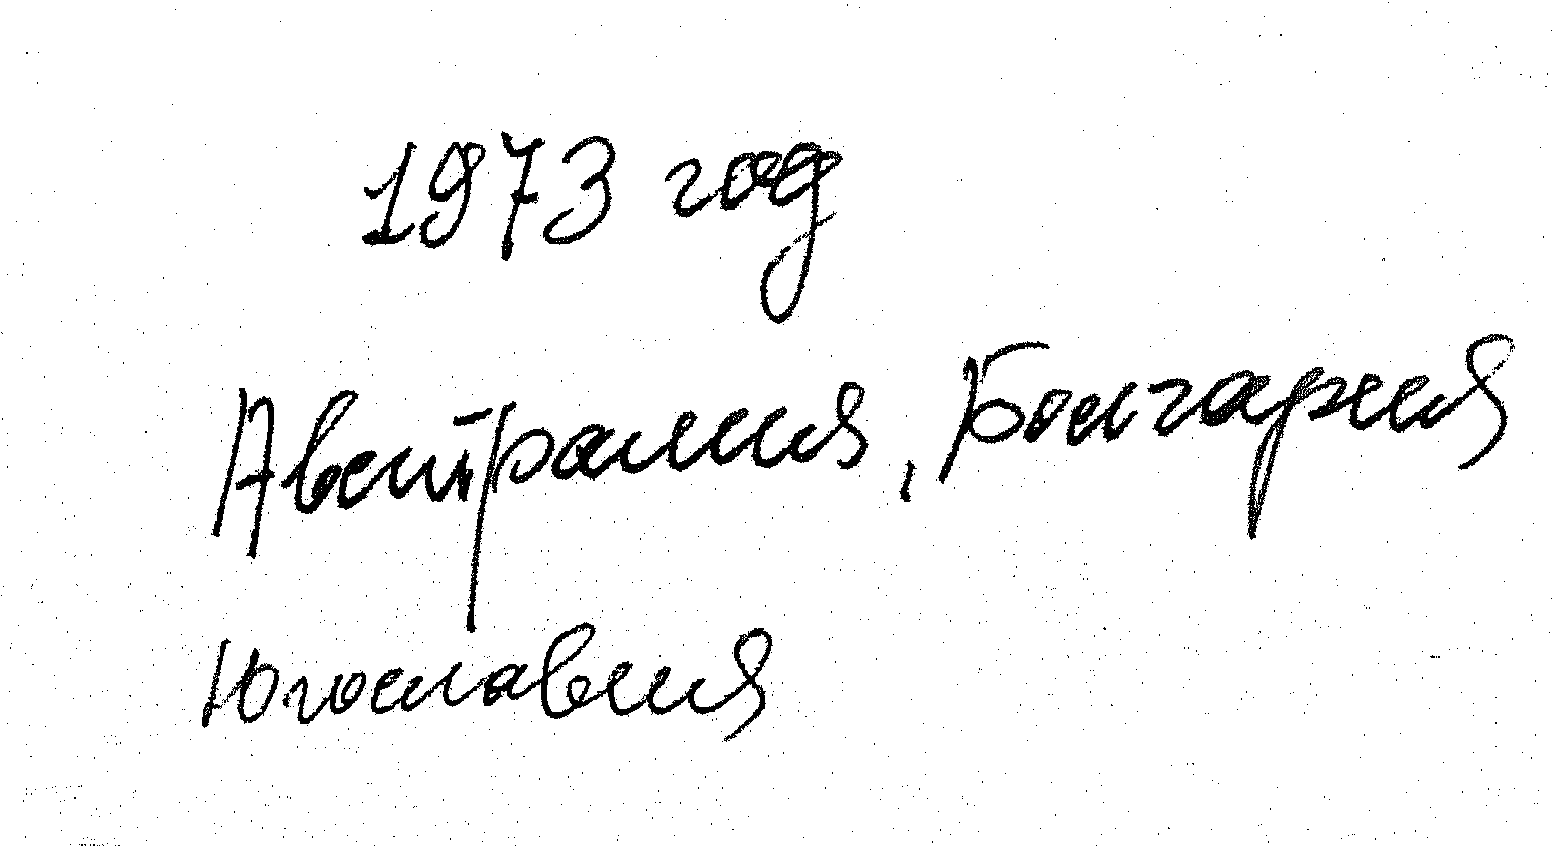 1973 год
Австралия, Болгария
Югославия